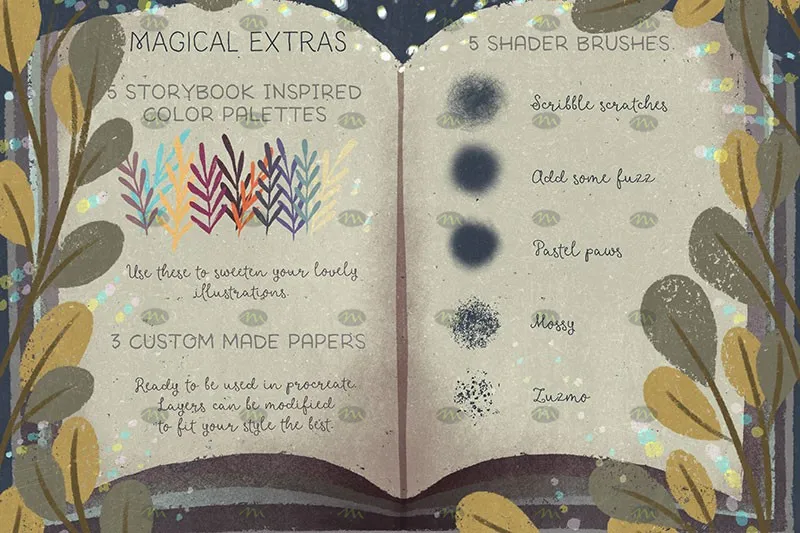 MAGICAL EXTRAS
5 STORYBOOK INSPIRED
COLOR PALETTES
Use these to sweeten your lovely
illustrations.
3 CUSTOM MADE PAPERS
Ready to be used in procreate.
Layers can be modified
to fit your style the best.
5 SHADER BRUSHES
Scribble scratches
Add some fuzz
Pastel paws
Mossy
Zuzmo